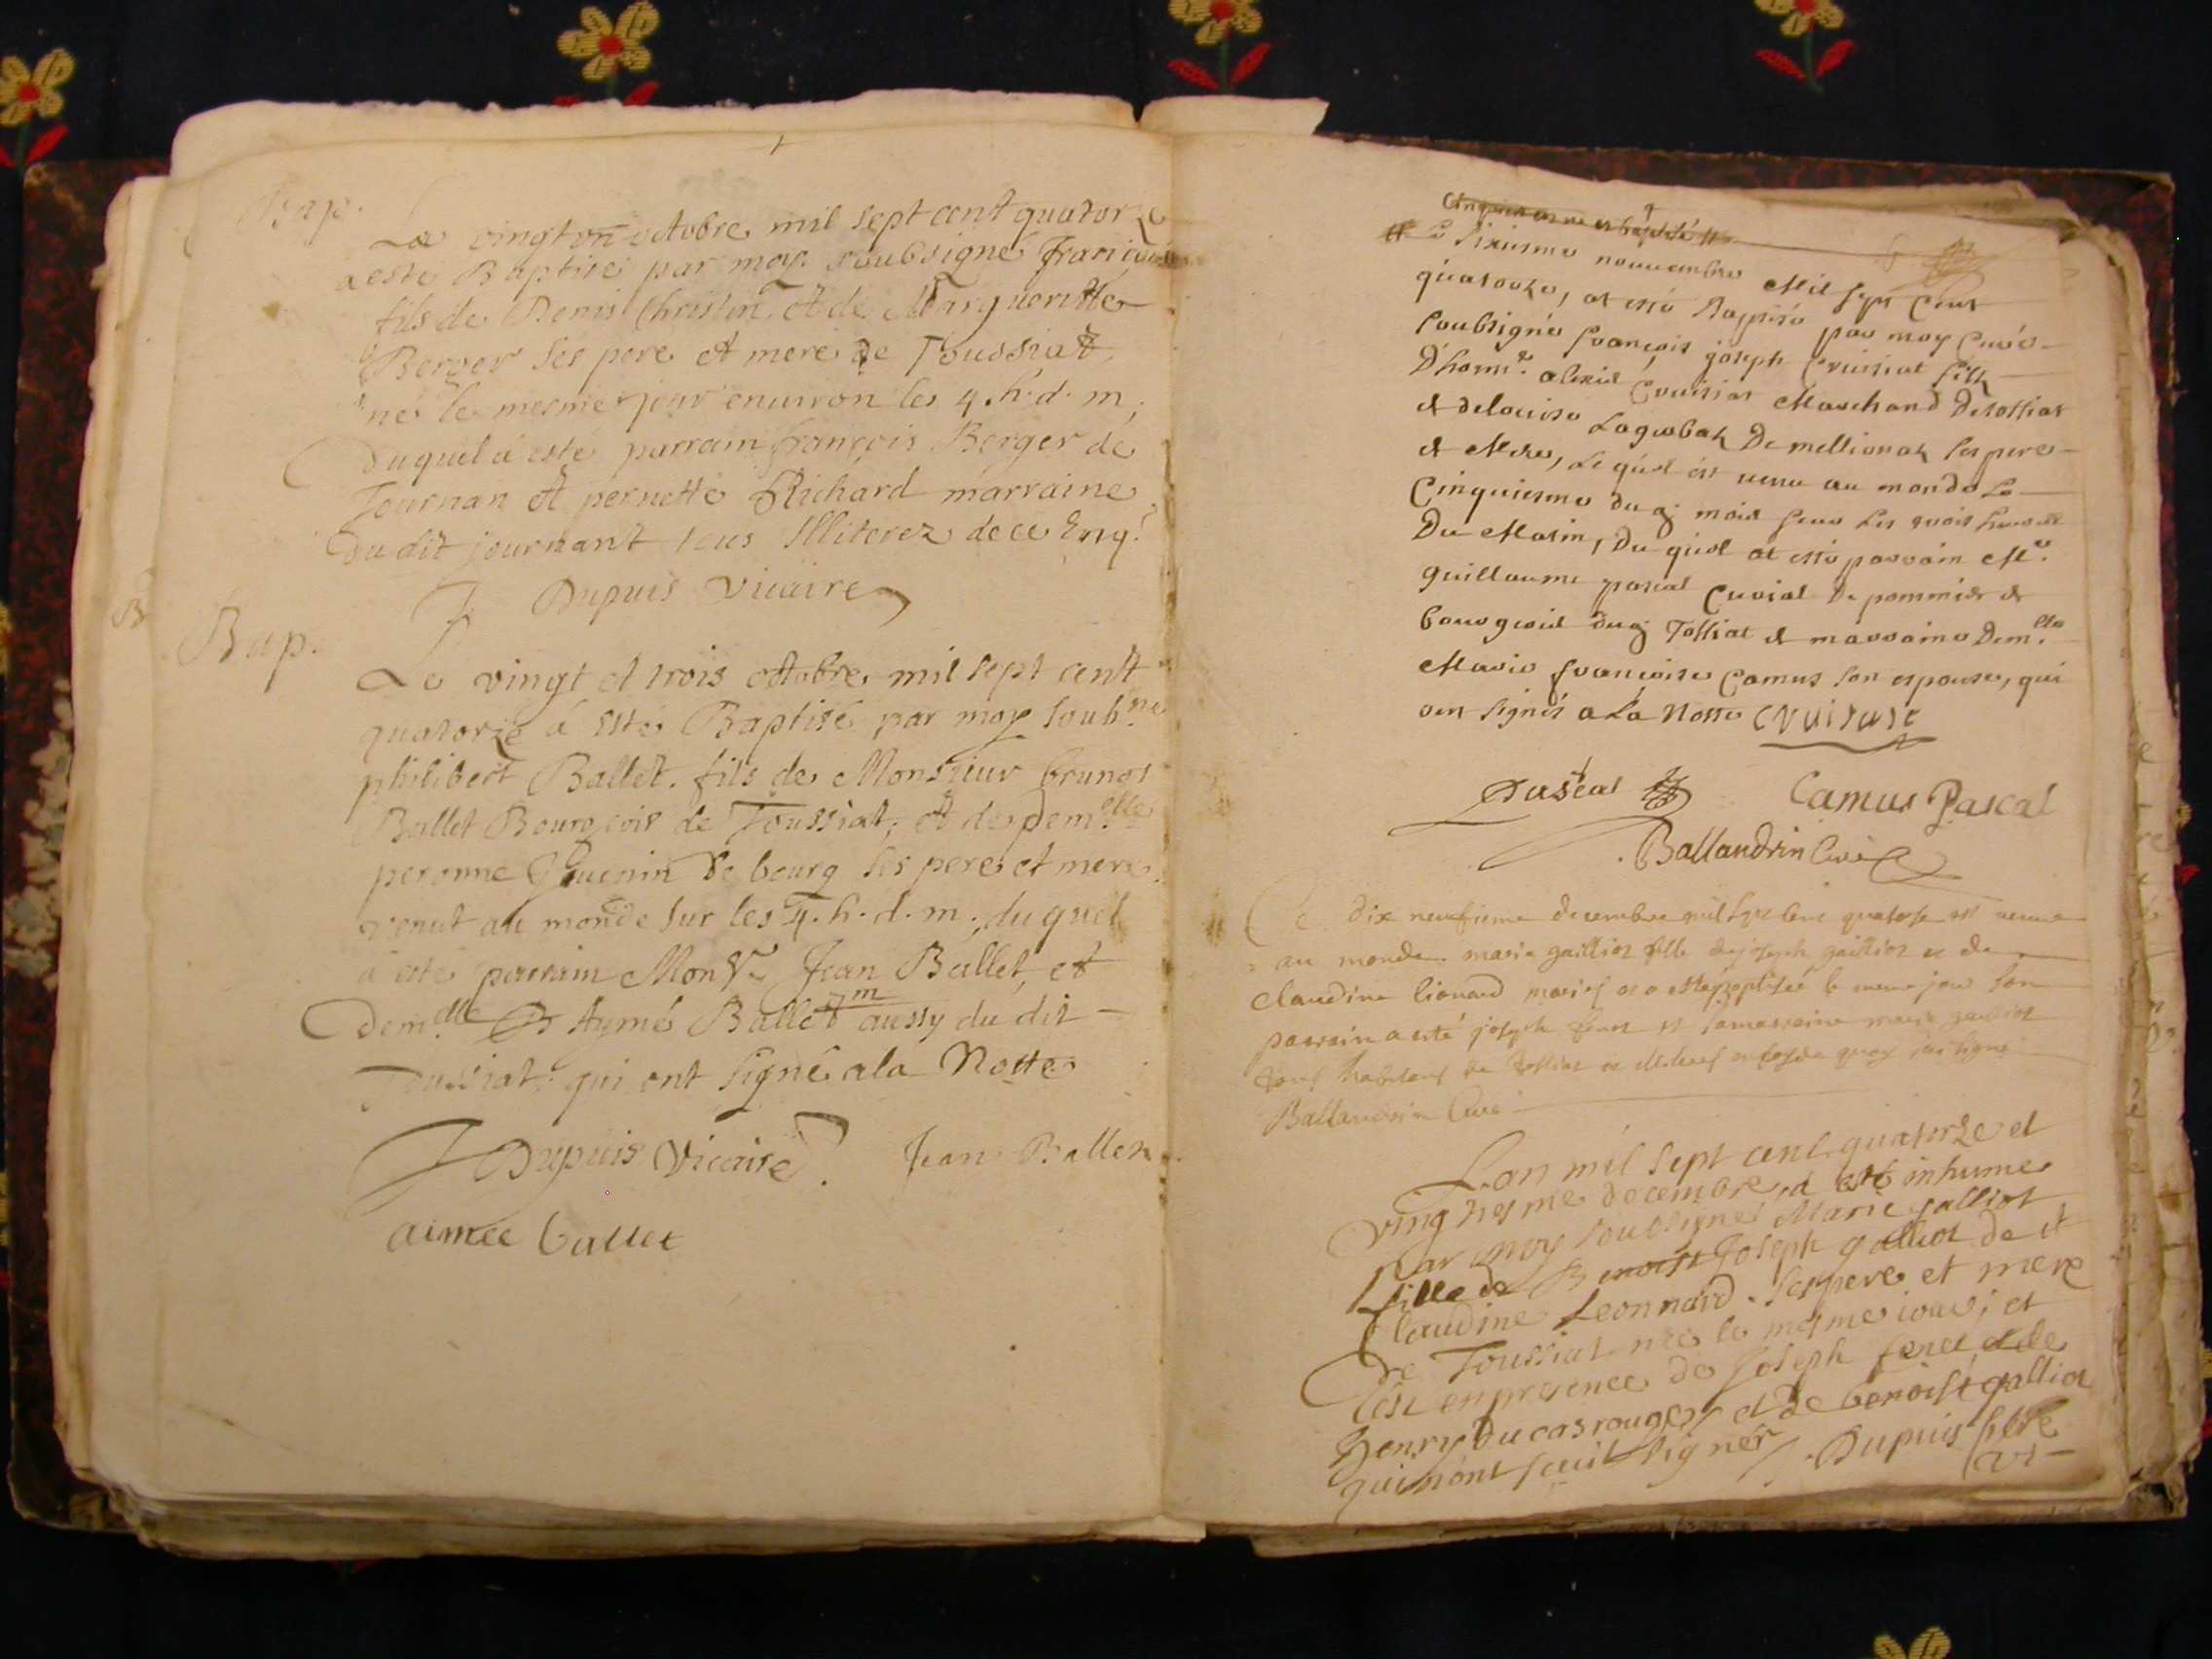 Bap.
Le vingt vn octobre mil sept cent quatorze
a esté Baptisé par moy soubsigné francois
fils de Denis Christin et de Margueritte
Berger ses pere et mere de Toussiat
né le mesme jour enuiron les 4. h. d. m;
Duquel a esté parrain françois Berger de
Journan et pernette Richard marraine
Du dit journant tous Illiterez de ce Enq.
Dupuis Vicaire
Bap.
Le vingt et trois octobre mil sept cent
quatorze á esté Baptisé par moy soub.né
philibert Ballet. fils de Monsieur brunos
Ballet Bourgeois de Toussiat, et de Dem.elle
peronne Guenin de bourg ses pere et mere
venut au monde sur les 4. h. d. m. duquel
a esté parrain Mons.r Jean Ballet, et
dem.elle Aymé Ballet m aussy du dit
Toussiat; qui ont signé a la Notte
Dupuis Vicaire. Jean Ballet
aimée ballet
Le sixiesme nouuembre Mil sept Cent
quatorze, at esté Baptisé par moy Curé
soubsigné françois joseph Cruisiat fils
D'hon.e alexis Cruisiat Marchand de tossiat
et de louise de mellionas ses pere
et Mere, le quel est venu au monde le
Cinquiesme du mois sur les trois heures
Du Matin, Du quel at esté parrain M.e
guillaume pascal Curial De pommier et
bourgeois dud tossiat et marraine Dem.elle
Marie françoise Camus son espouse, qui
ont signés a la Notte Cruisiat
Pascal Camus Pascal
Ballandrin Curé
Ce dix neufieme decembre mil sept cent quatorse est venue
au monde marie gailliot fille de joseph gailliot et de
claudine lionard mariés et a esté baptisée le meme jour son
parrain a esté joseph feret et sa marraine marie gailliot
tous habitans de tossiat et Illiterés en foy de quoy jai signé
Ballandrin Curé
L'an mil sept cent quatorze et
vingtiesme decembre a esté inhumée
par moy soubsigné Marie galliot
fille de Benoist Joseph galliot et de
Claudine Leonnard ses pere et mere
De Toussiat née le mesme iour; et
c'est en presence de Joseph feret et de
henry Ducasrouge et de benoist galliot
qui n'ont sceut signer. Dupuis pbre
vi